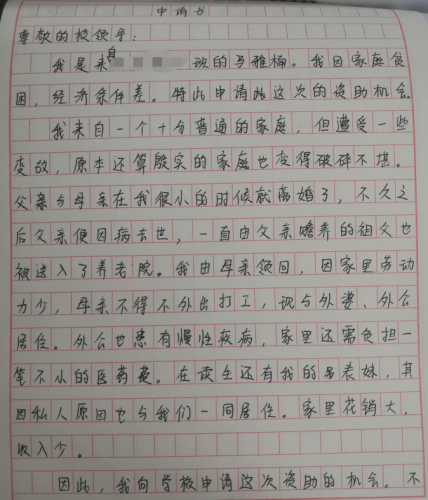 申请书
尊敬的校领导:
我是来自班的马雅楠。我因家庭贫
困,经济条件差。特此申请此这次的资助机会。
我来自一个十分普通的家庭,但遭受一些
变故,原本还算殷实的家庭也变得破碎不堪。
父亲与母亲在我很小的时候就离婚了,不久之
后父亲便因病去世,一直由父亲赡养的祖父也
被送入了养老院。我由母亲领回,因家里劳动
力少,母亲不得不外出打工,现与外婆、外公
居住。外公也患有慢性疾病,家里还需负担一
笔不小的医药费。在读生还有我的表妹,其
因私人原因也与我们一同居住。家里花销大,
收入少。
因此,我向学校申请这次资助的机会。不